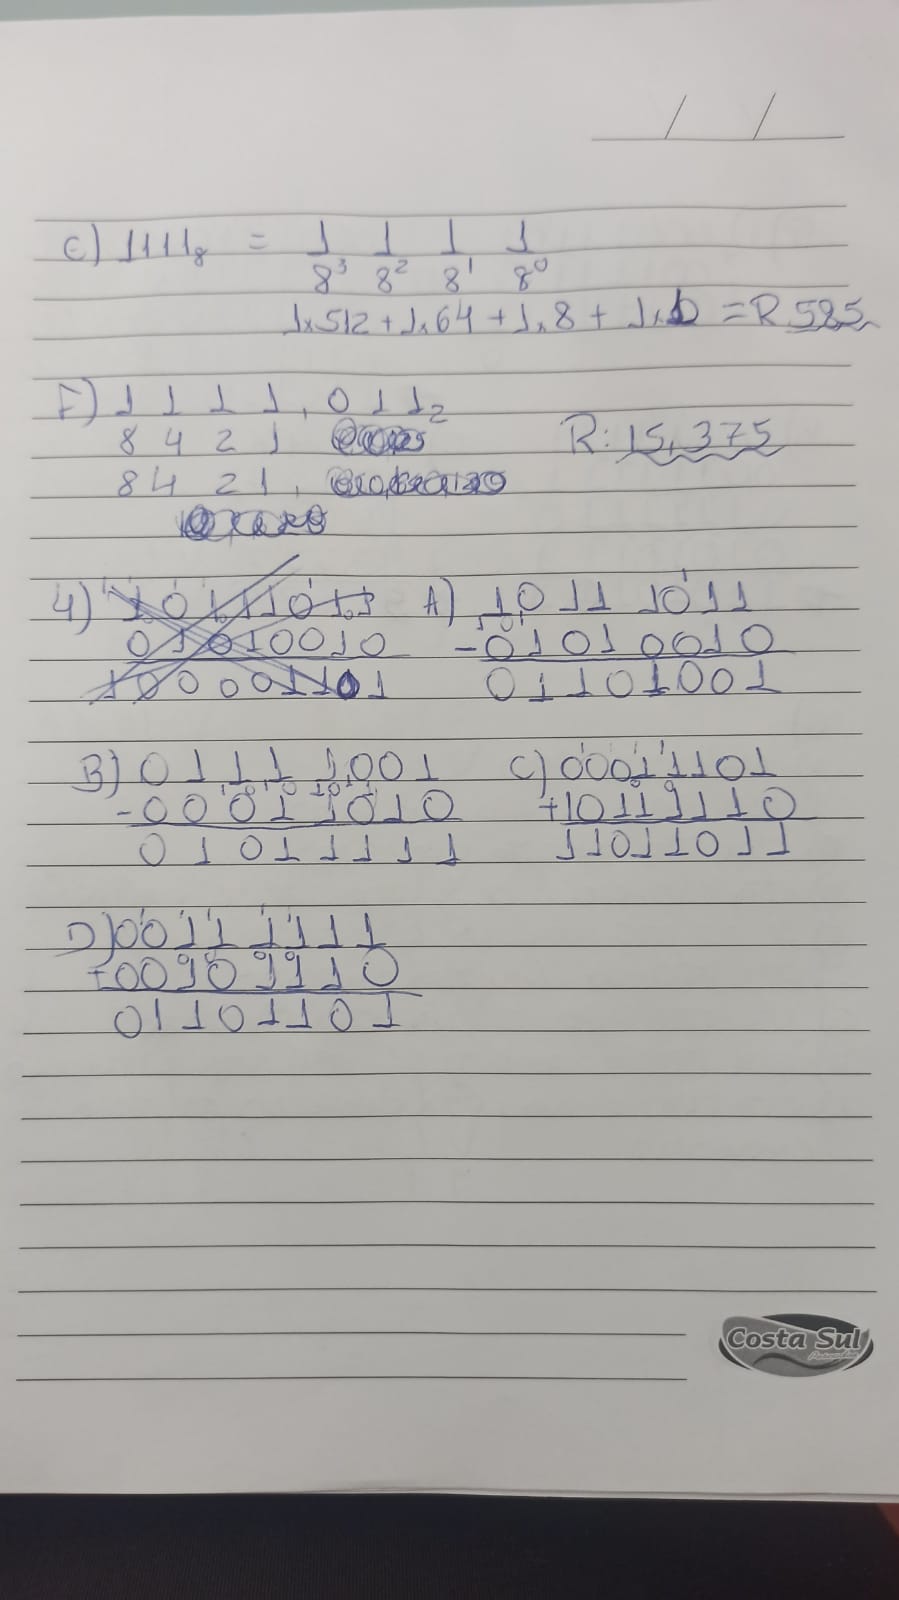 E) 1111₈ = 1 1 1 1
8³ 8² 8¹ 8⁰
1x512 + 1x64 + 1x8 + 1x1 = R 585
F) 1 1 1 1 , 0 1 1₂
8 4 2 1
R: 15,375
8 4 2 1 ,
4) 1 0 1 1 1 0 1 1
0 1 0 1 0 0 1 0
1 0 0 0 0 1 1 0 1
A) 1 0 1 1 1 0 1 1
- 0 1 0 1 0 0 1 0
0 1 1 0 1 0 0 1
B) 0 1 1 1 1 0 0 1
- 0 0 0 1 1 0 1 0
0 1 0 1 1 1 1 1
C) 0 0 0 1 1 1 0 1
+ 1 0 1 1 1 1 1 0
1 1 0 1 1 0 1 1
D) 0 0 1 1 1 1 1 1
+ 0 0 1 0 1 1 1 0
0 1 1 0 1 1 0 1
Costa Sul